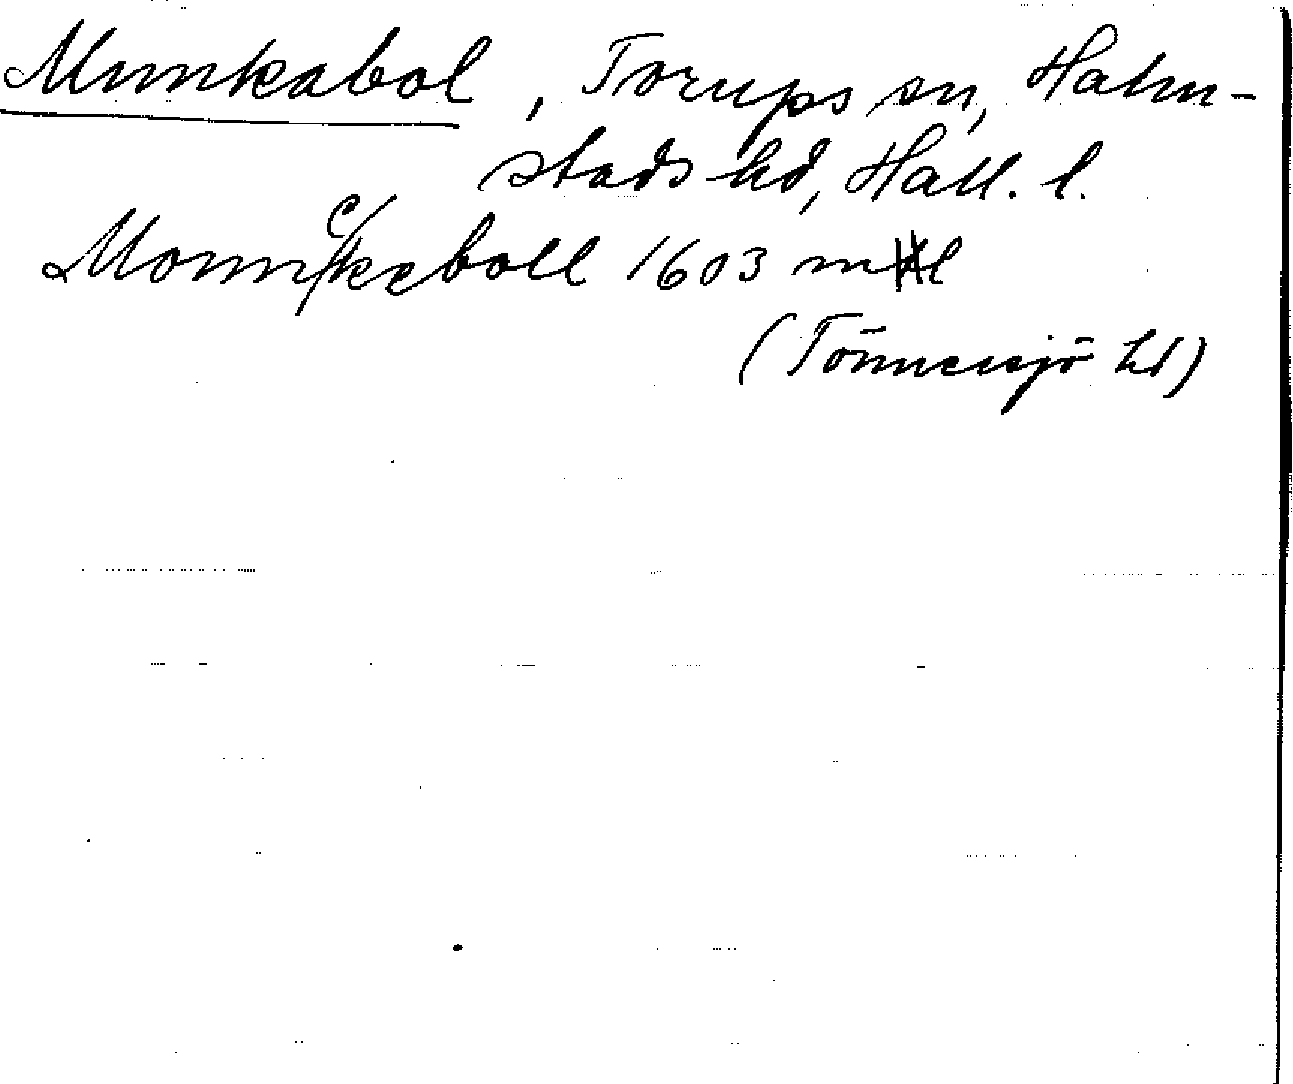 Munkabol, Torups sn, Halm-
stads hd, Hall. l.
Monnckeboll 1603 ml
(Tönnersjö hd)